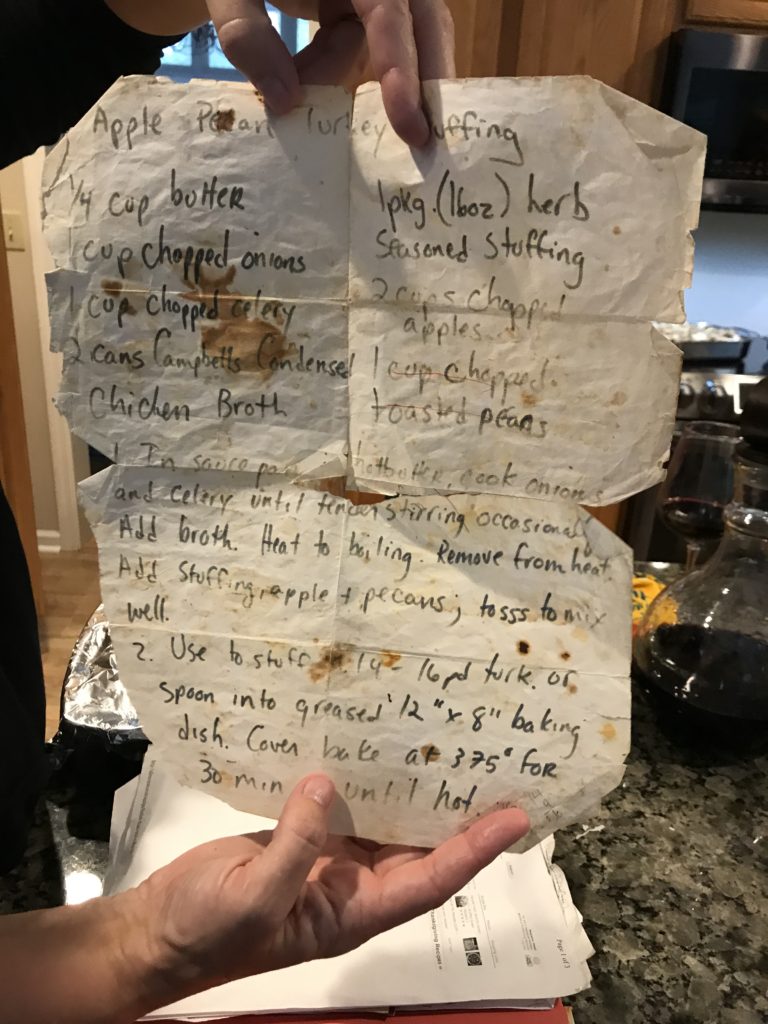 Apple Pecan Turkey Stuffing
1/4 cup butter
1 cup chopped onions
1 cup chopped celery
2 cans Campbells Condensed
Chicken Broth
1 pkg. (16oz) herb
Seasoned Stuffing
2 cups chopped
apples
1 cup chopped
toasted pecans
1. In sauce pan hot butter, cook onions
and celery until tender stirring occasionally
Add broth. Heat to boiling. Remove from heat.
Add stuffing, apple + pecans; tosss to mix
well.
2. Use to stuff 14 - 16 pd turk. or
spoon into greased 12" x 8" baking
dish. Cover bake at 375° for
30 min until hot.
Page 1 of 3